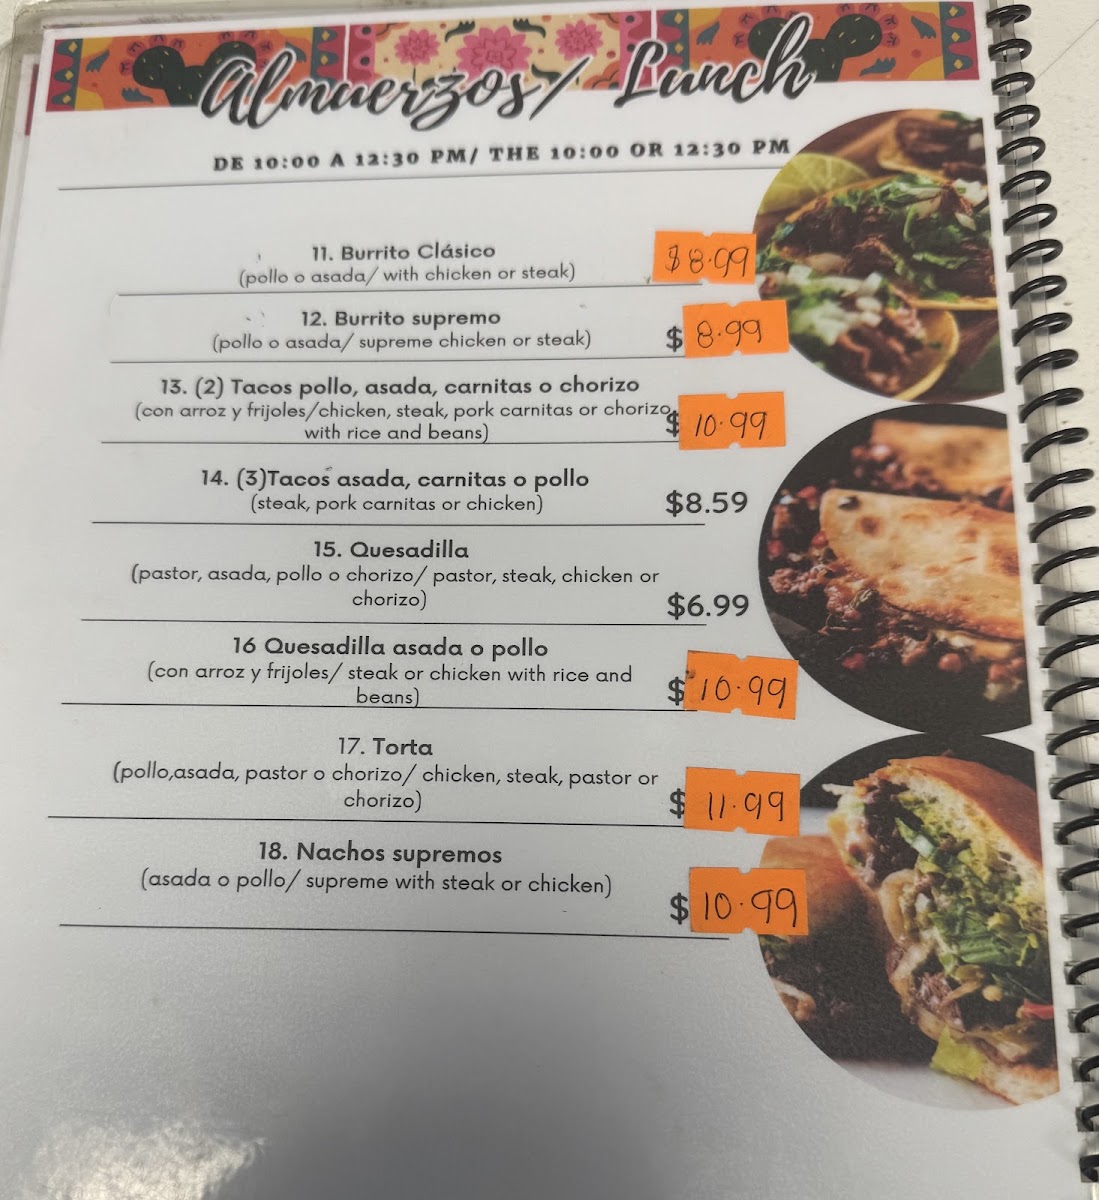 Almuerzos/ Lunch
DE 10:00 A 12:30 PM/ THE 10:00 OR 12:30 PM
11. Burrito Clásico
(pollo o asada/ with chicken or steak)
$8.99
12. Burrito supremo
(pollo o asada/ supreme chicken or steak)
$ 8.99
13. (2) Tacos pollo, asada, carnitas o chorizo
(con arroz y frijoles/chicken, steak, pork carnitas or chorizo
with rice and beans)
$ 10.99
14. (3)Tacos asada, carnitas o pollo
(steak, pork carnitas or chicken)
$8.59
15. Quesadilla
(pastor, asada, pollo o chorizo/ pastor, steak, chicken or
chorizo)
$6.99
16 Quesadilla asada o pollo
(con arroz y frijoles/ steak or chicken with rice and
beans)
$ 10.99
17. Torta
(pollo,asada, pastor o chorizo/ chicken, steak, pastor or
chorizo)
$ 11.99
18. Nachos supremos
(asada o pollo/ supreme with steak or chicken)
$ 10.99